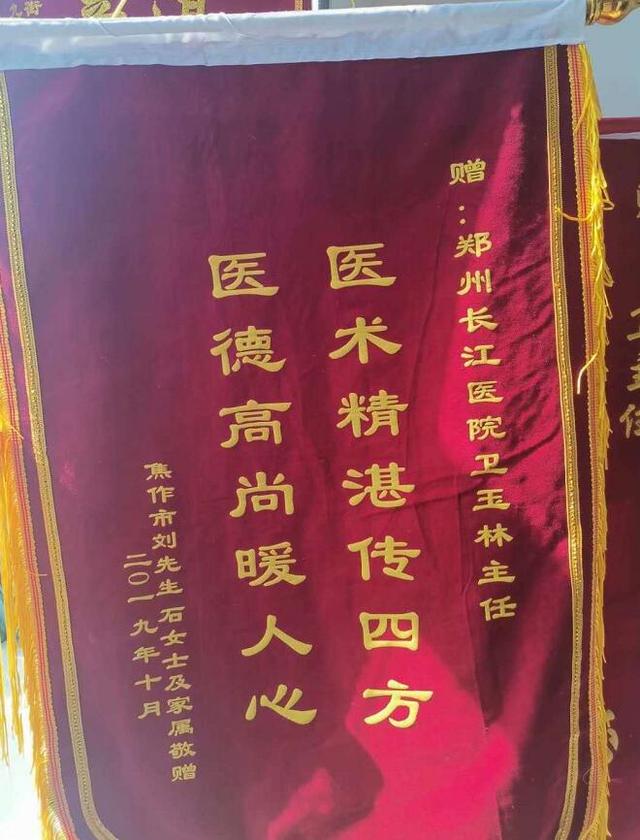 赠：郑州长江医院卫玉林主任
医术精湛传四方
医德高尚暖人心
焦作市刘先生石女士及家属敬赠
二〇一九年十月
主任
九街